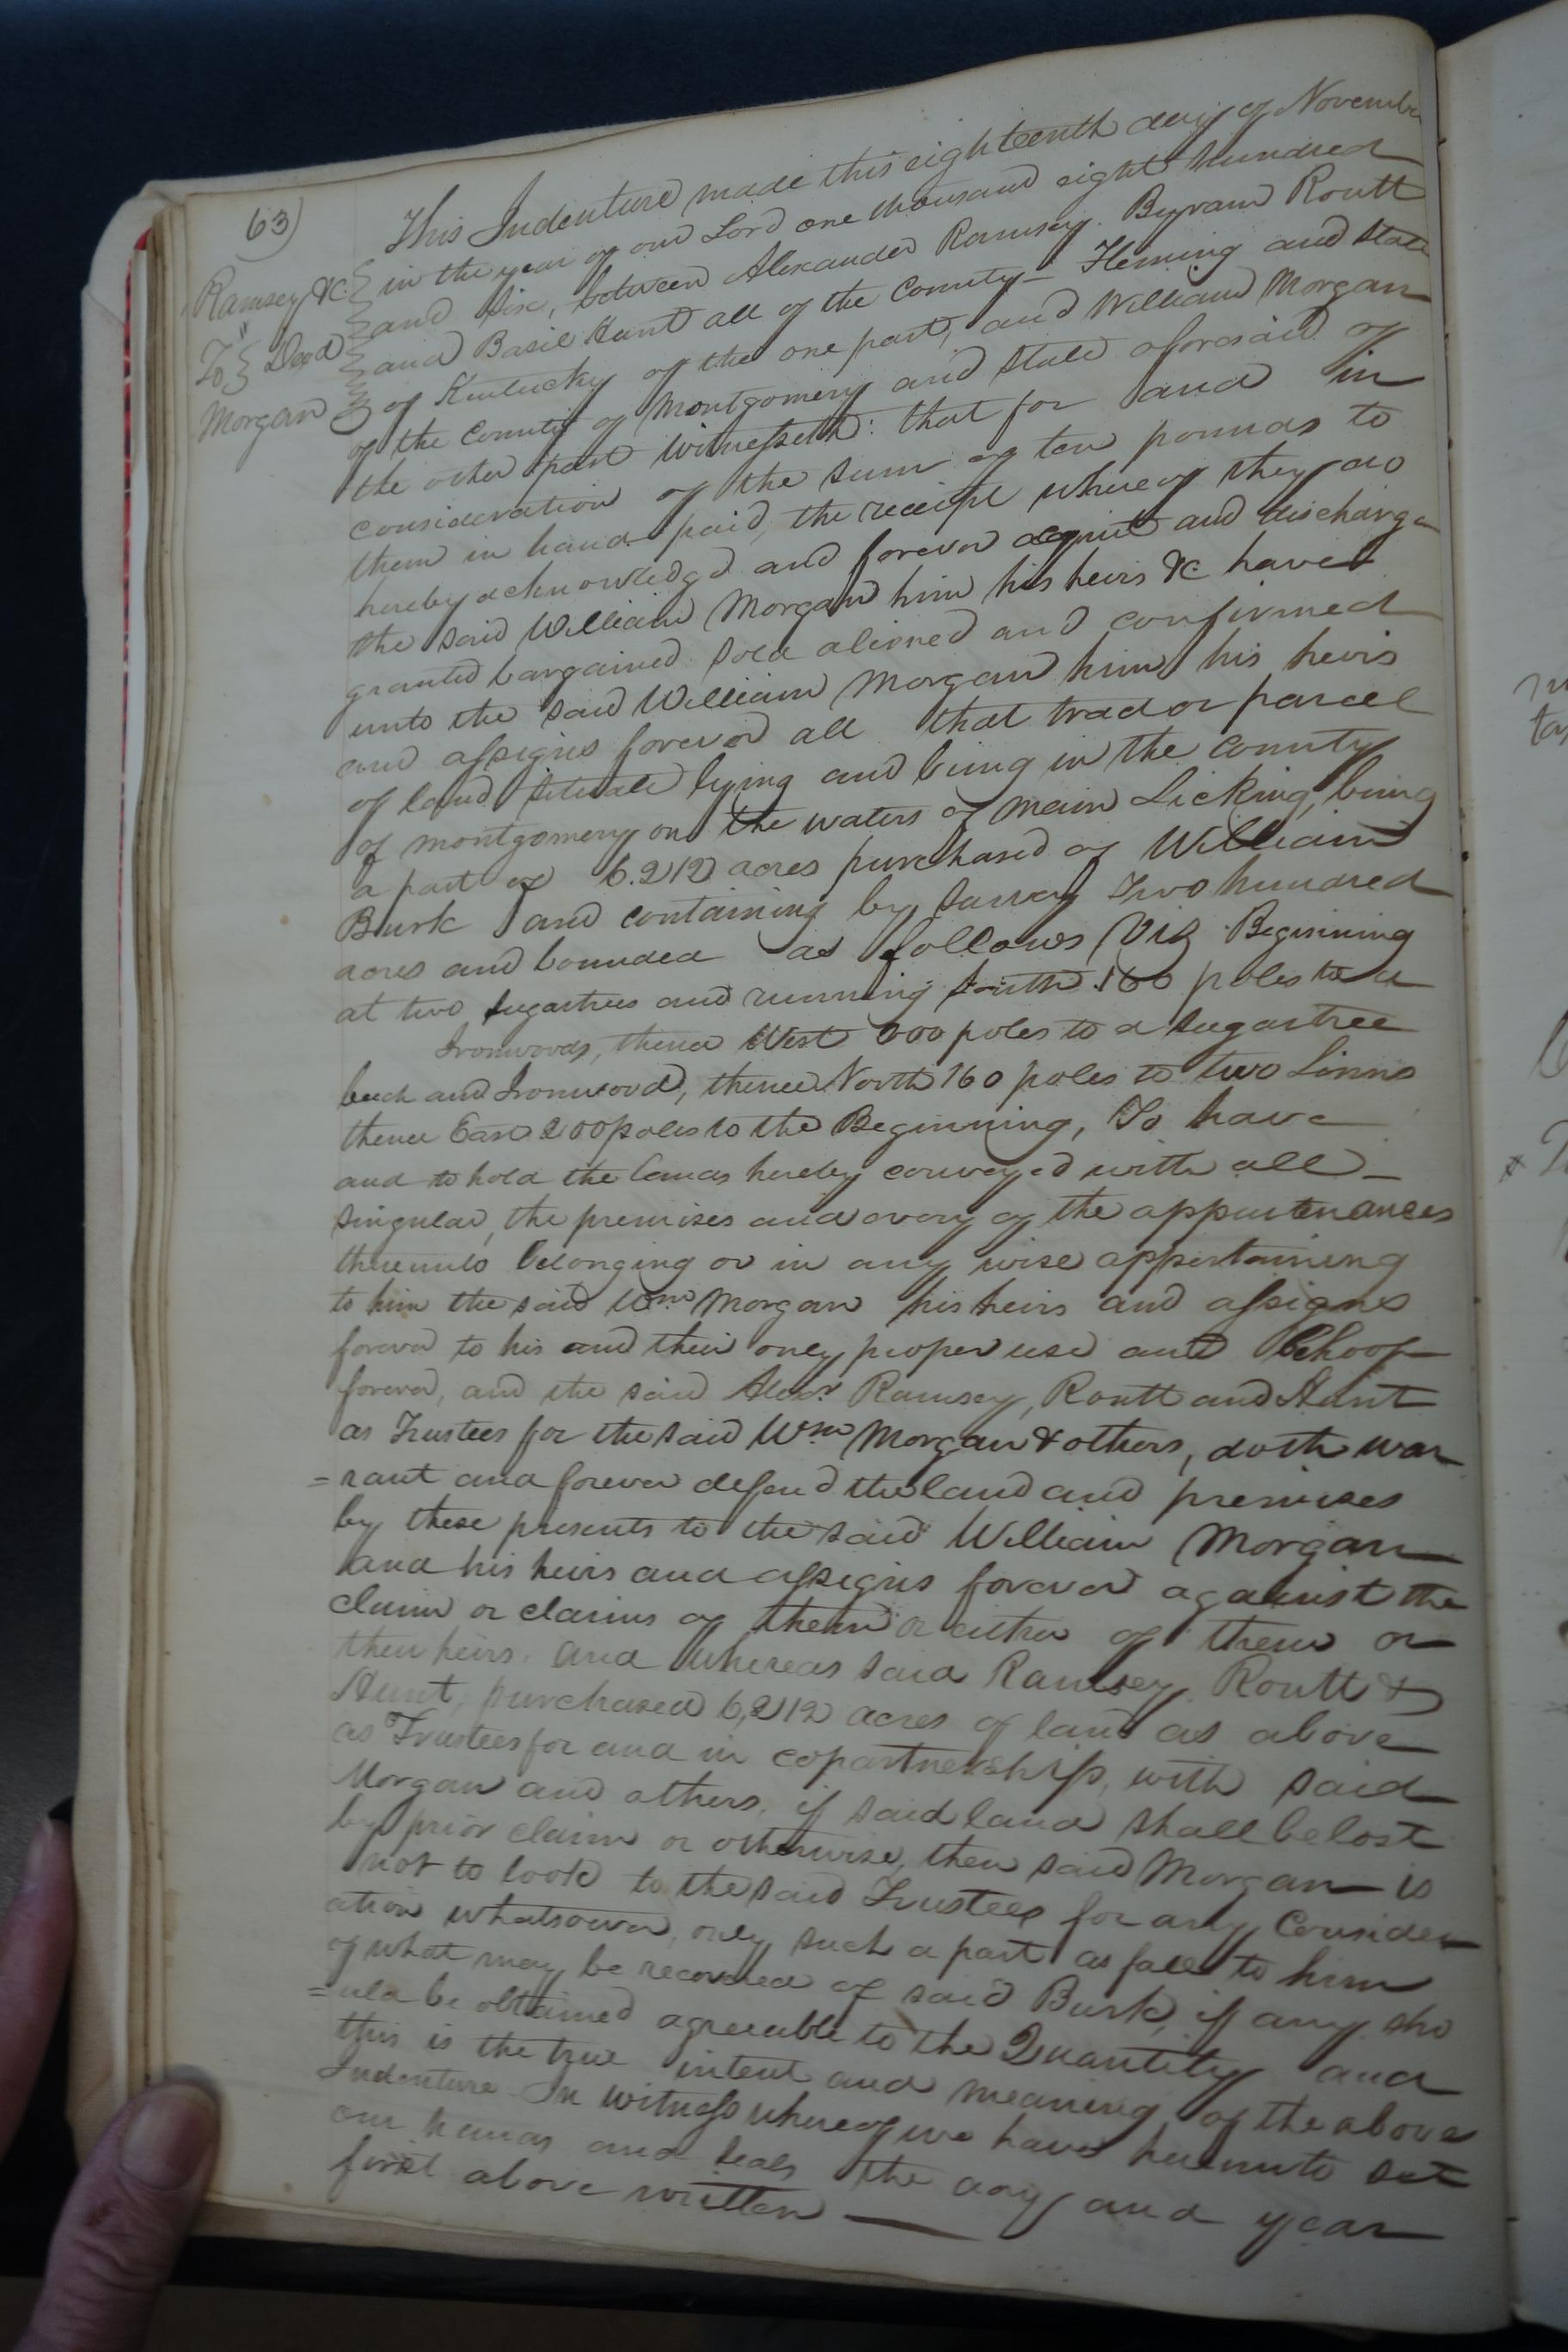 63)
Ramsey &c
To } Deed
Morgan
This Indenture made this eighteenth day of November
in the year of our Lord one thousand eight hundred
and six, between Alexander Ramsey. Byram Routt
and Basil Hunt all of the County Fleming and State
of Kentucky of the one part, and William Morgan
of the County of Montgomery and State aforesaid of
the other part Witnesseth: that for and in
consideration of the sum of ten pounds to
them in hand paid, the receipt whereof they do
hereby acknowledgd and forever acquit and discharge
the said William Morgan him his heirs &c have
granted bargained sold aliened and confirmed
unto the said William Morgan him his heirs
and assigns forever all that tract or parcel
of land, situate lying and being in the County
of montgomery on the waters of main Licking, being
a part of 6.212 acres purchased of William
Burk and containing by survey Two hundred
acres and bounded as follows (Viz Beginning
at two sugartrees and running South 160 poles to a
Ironwoods, thence West 200 poles to a Sugartree
beech and Ironwood, thence North 160 poles to two Linns
thence East 200 poles to the Beginning, To have
and to hold the lands hereby conveyed with all
singular, the premises and every of the appurtenances
thereunto belonging or in any wise appertaining
to him the said Wm Morgan his heirs and assigns
forever to his and their only proper use and behoof
forever, and the said Alexr Ramsey, Routt and Hunt
as Trustees for the said Wm Morgan & others, doth war
=rant and forever defend the land and premises
by these presents to the said William Morgan
and his heirs and assigns forever against the
claim or claims of them or either of them or
their heirs. And whereas said Ramsey Routt &
Hunt, purchased 6,212 acres of land as above
as Trustees for and in copartnership, with said
Morgan and others, if said land shall be lost
by prior claim or otherwise, then said Morgan is
not to look to the said Trustees for any Consider
ation whatsoever, only such a part as falls to him
of what may be recovered of said Burk, if any sho
=uld be obtained agreeable to the Quantity and
this is the true intent and meaning of the above
Indenture In witness whereof we have hereunto set
our hands and seals the day and year
first above written